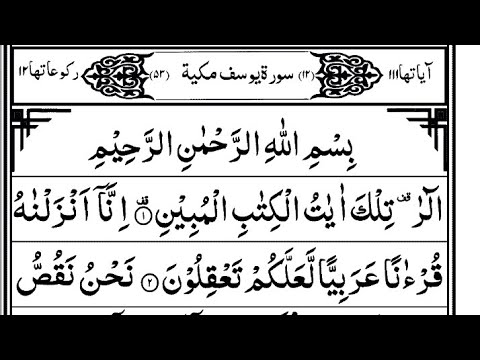 آیاتها ١١١ (١٢) سورة يوسف مكية (٥٣) ركوعاتها ١٢
بِسْمِ اللهِ الرَّحْمٰنِ الرَّحِيْمِ
الٓرٰ ۫ تِلْكَ اٰيٰتُ الْكِتٰبِ الْمُبِيْنِ ۟ۙ ١ اِنَّاۤ اَنْزَلْنٰهُ
قُرْءٰنًا عَرَبِيًّا لَّعَلَّكُمْ تَعْقِلُوْنَ ٢ نَحْنُ نَقُصُّ